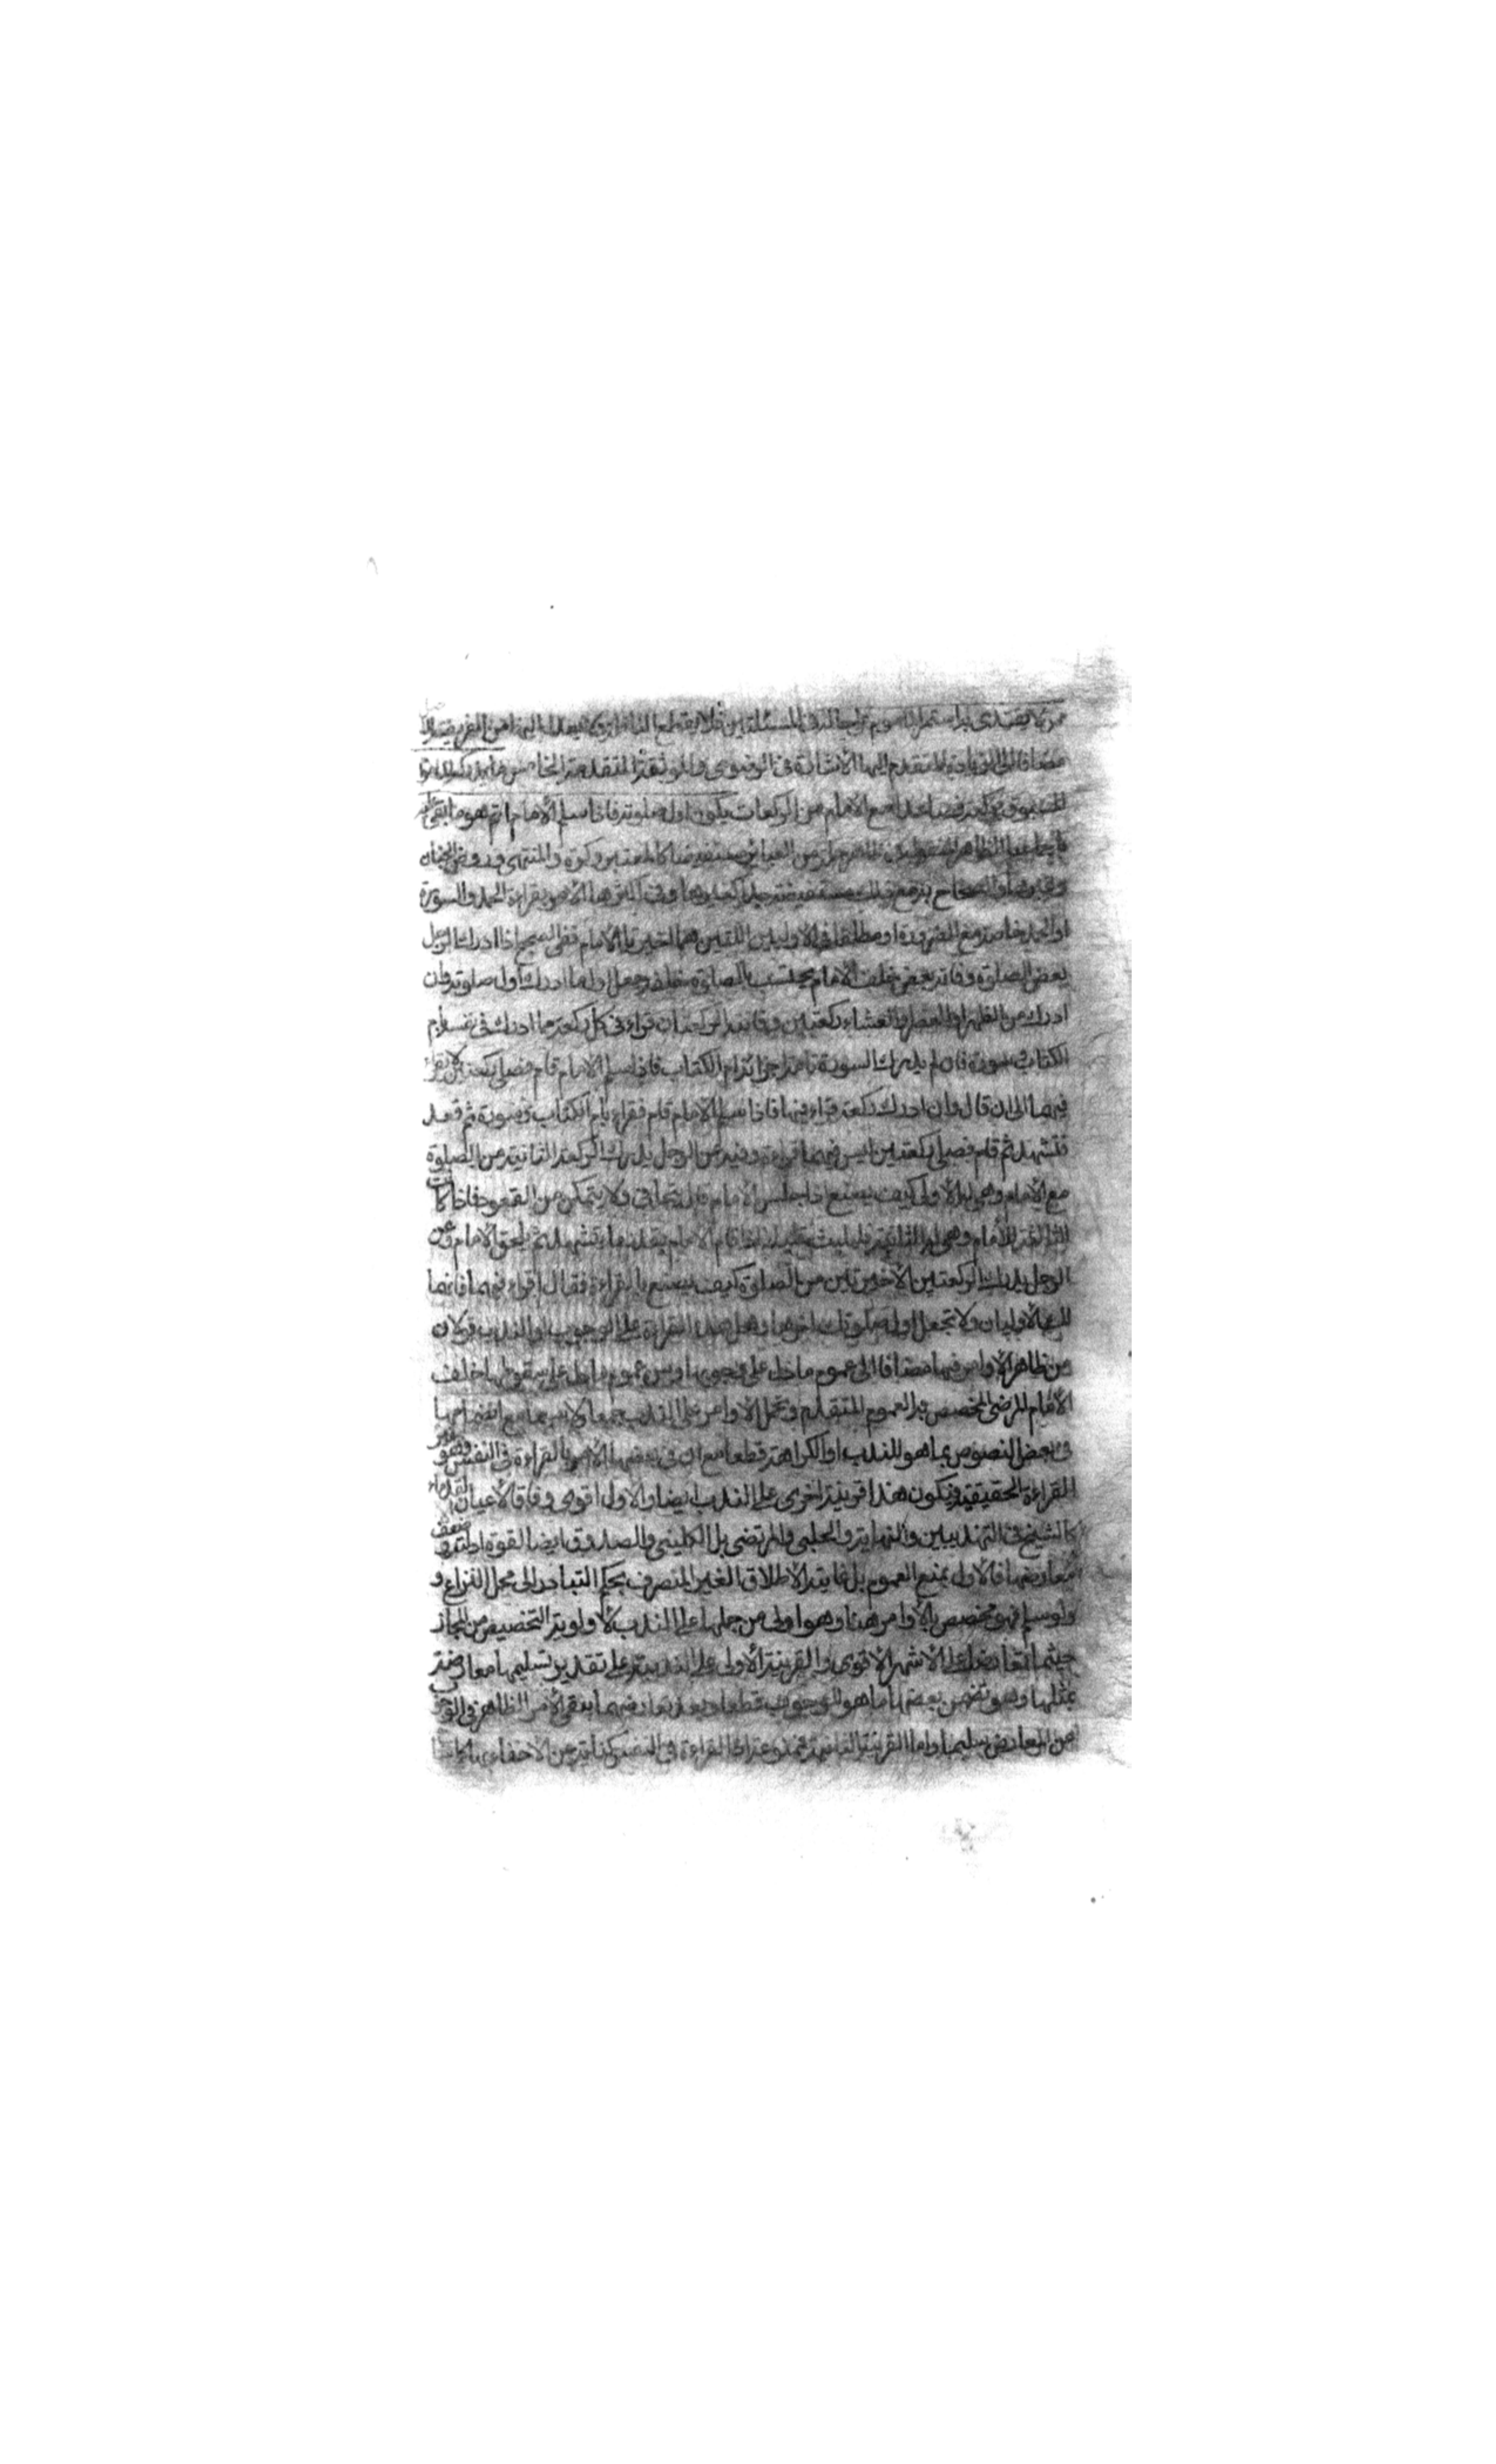 ممن لا يقتدى به استمر المأموم على حاله في المسئلتين فلا يقطع النافلة ولا يعدل اليها من الفريضة
مضافا الى الزيادة المتقدم اليها الاشارة في الرضوي والموثقة المتقدمة الخامس ما يدركه
المسبوق بركعة فصاعدا مع الامام من الركعات يكون اول صلوته فاذا سلم الامام اتم هو ما بقى عليه
باجماعنا الظاهر المنقول في ظاهر جمل من العباير مستفيضا كالمعتبر وكره والمنتهى وروض الجنان
وغيرها والصحاح به مع ذلك مستفيضة جدا كغيرها وفي اكثرها الأمر بقراءة الحمد والسورة
او الحمد خاصة مع الضرورة او مطلقا في الاوليين اللتين هما اخيرتا الامام ففي الصحيح اذا ادرك الرجل
بعض الصلوة وفاته بعض خلف الامام يحتسب بالصلوة خلفه جعل اول ما ادرك اول صلوته وان
ادرك من الظهر او العصر او العشاء ركعتين وفاتته ركعتان قراء في كل ركعة مما ادرك في نفسه بام
الكتاب وسورة فان لم يدرك السورة تامة اجزائه ام الكتاب فاذا سلم الامام قام فصلى ركعتين لا يقراء
فيهما الى ان قال وان ادرك ركعة قراء فيها فاذا سلم الامام قام فقراء بام الكتاب وسورة ثم قعد
فتشهد ثم قام فصلى ركعتين ليس فيهما قراءة وفيه عن الرجل يدرك الركعة الثانية من الصلوة
مع الامام وهي له الاولى كيف يصنع اذا جلس الامام قال يتجافى ولا يتمكن من القعود فاذا كانت
الثالثة للأمام وهي له الثانية فليلبث قليلا اذا قام الامام بقدر ما يتشهد ثم يلحق الامام وعن
الرجل يدرك الركعتين الاخيرتين من الصلوة كيف يصنع بالقراءة فقال اقراء فيهما فانهما
لك الأوليان ولا تجعل اول صلوتك اخرها وهل هذه القراءة على الوجوب او الندب قولان
من ظاهر الاوامر فيها مضافا الى عموم ما دل على وجوبها ومن عموم ما دل على سقوطها خلف
الأمام المرضي المخصص به العموم المتقدم وتحمل الاوامر على الندب جمعا ولا سيما مع انضمامها
في بعض النصوص بما هو للندب او الكراهة قطعا مع ان في بعضها الأمر بالقراءة في النفس وهو غير
القراءة الحقيقية فيكون هذا قرينة اخرى على الندب ايضا والاول اقوى وفاقا لأعيان القدماء
كالشيخ في التهذيبين والنهاية والحلبي والمرتضى بل الكليني والصدوق ايضا لقوة ادلته وضعف
معارضها فالاول بمنع العموم بل غايته الاطلاق الغير المنصرف بحكم التبادر الى محل النزاع و
ولو سلم فهو مخصص بالأوامر هنا وهو اولى من حملها على الندب لأولوية التخصيص من المجاز
حيثما تعارضا على الأشهر الاقوى والقرينة الأولى على الندبية على تقدير تسليمها معارضة
بمثلها وهو تضمن بعضها ما هو للوجوب قطعا وبعد تعارضهما يبقى الأمر الظاهر في الوجوب
عن المعارض سليما واما القرينة الثانية فممنوعة اذ القراءة في النفس كناية عن الاخفات